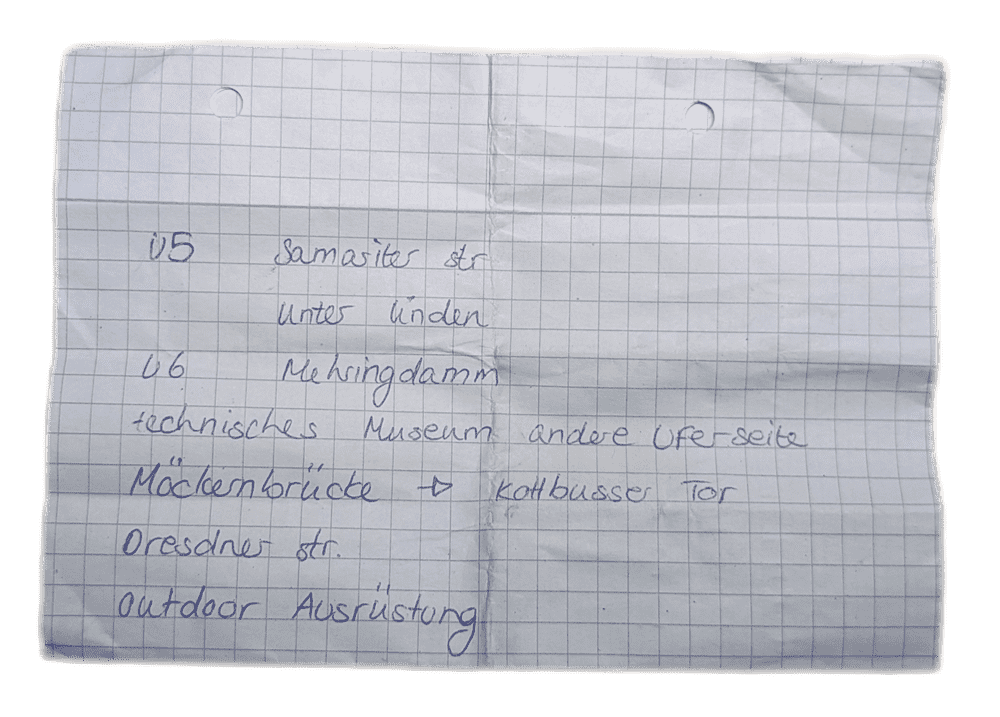 U5 Samariter str
unter linden
U6 Mehringdamm
technisches Museum andere Uferseite
Möckenbrücke → Kottbusser Tor
Dresdner str.
outdoor Ausrüstung